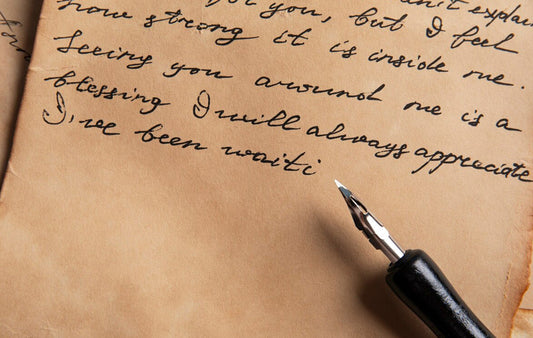 for you, but I feel
how strong it is inside me.
Seeing you around me is a
blessing I will always appreciate
I've been waiti